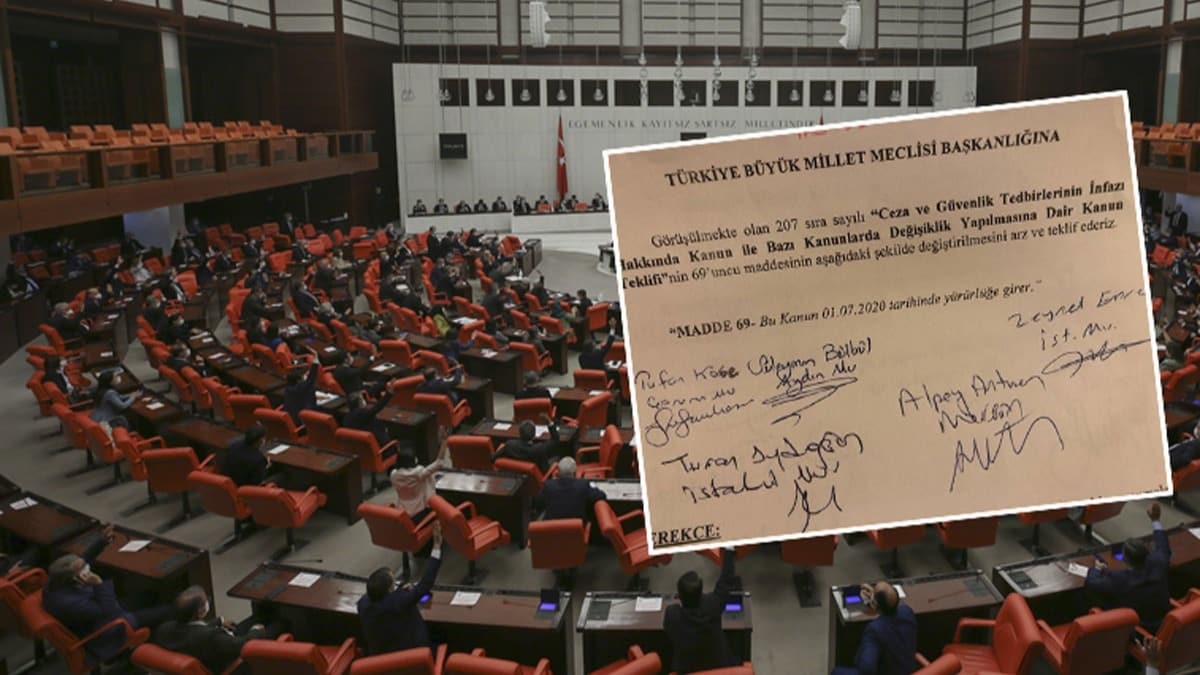 EGEMENLİK KAYITSIZ ŞARTSIZ MİLLETİNDİR
TÜRKİYE BÜYÜK MİLLET MECLİSİ BAŞKANLIĞINA
Görüşülmekte olan 207 sıra sayılı “Ceza ve Güvenlik Tedbirlerinin İnfazı
Hakkında Kanun ile Bazı Kanunlarda Değişiklik Yapılmasına Dair Kanun
Teklifi”nin 69’uncu maddesinin aşağıdaki şekilde değiştirilmesini arz ve teklif ederiz.
“MADDE 69- Bu Kanun 01.07.2020 tarihinde yürürlüğe girer.”
Zeynel Emre
İst. Mv.
Tufan Köse Süleyman Bülbül
Aydın Mv
Alpay Antmen
Mersin
Turan Aydoğan
İstanbul Mv.
EREKÇE: